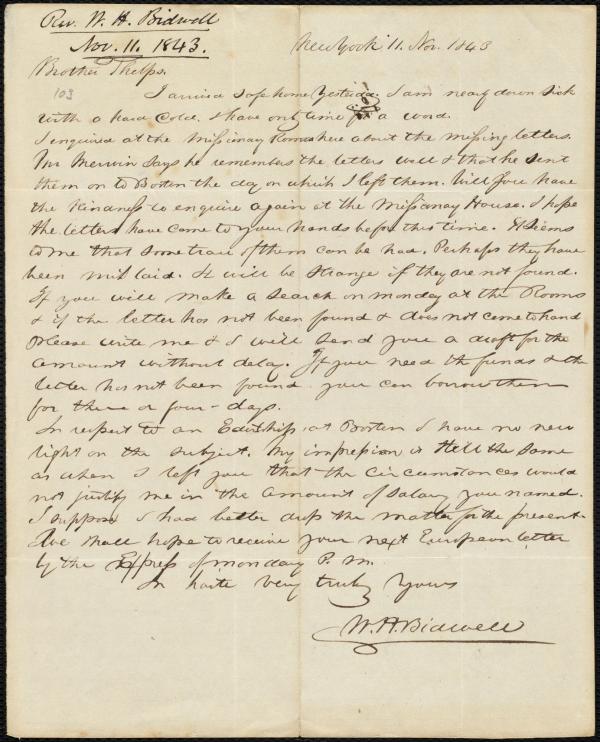 Rev. W. H. Bidwell
Nov. 11. 1843.
New York 11. Nov. 1843
Brother Phelps.
103
I arrived safe home Yesterday. I am nearly down sick
with a hard cold. I have only time for a word.
I enquired at the Missionary Rooms here about the missing letters.
Mr Merwin says he remembers the letters well & that he sent
them on to Boston the day on which I left them. Will you have
the kindness to enquire again at the Missionary House. I hope
the letters have come to your hands before this time. It seems
to me that some trace of them can be had. Perhaps they have
been mislaid. It will be strange if they are not found.
If you will make a search on monday at the Rooms
& if the letter has not been found & does not come to hand
please write me & I will send you a draft for the
amount without delay. If you need the funds & the
letter has not been found you can borrow them
for three or four days.
In respect to an Editorship at Boston I have no new
light on the subject. My impression is still the same
as when I left you that the circumstances would
not justify me in the amount of salary you named.
I suppose I had better drop the matter for the present.
We shall hope to receive your next European letter
by the Express of monday P. M.
In haste very truly Yours
W. H. Bidwell